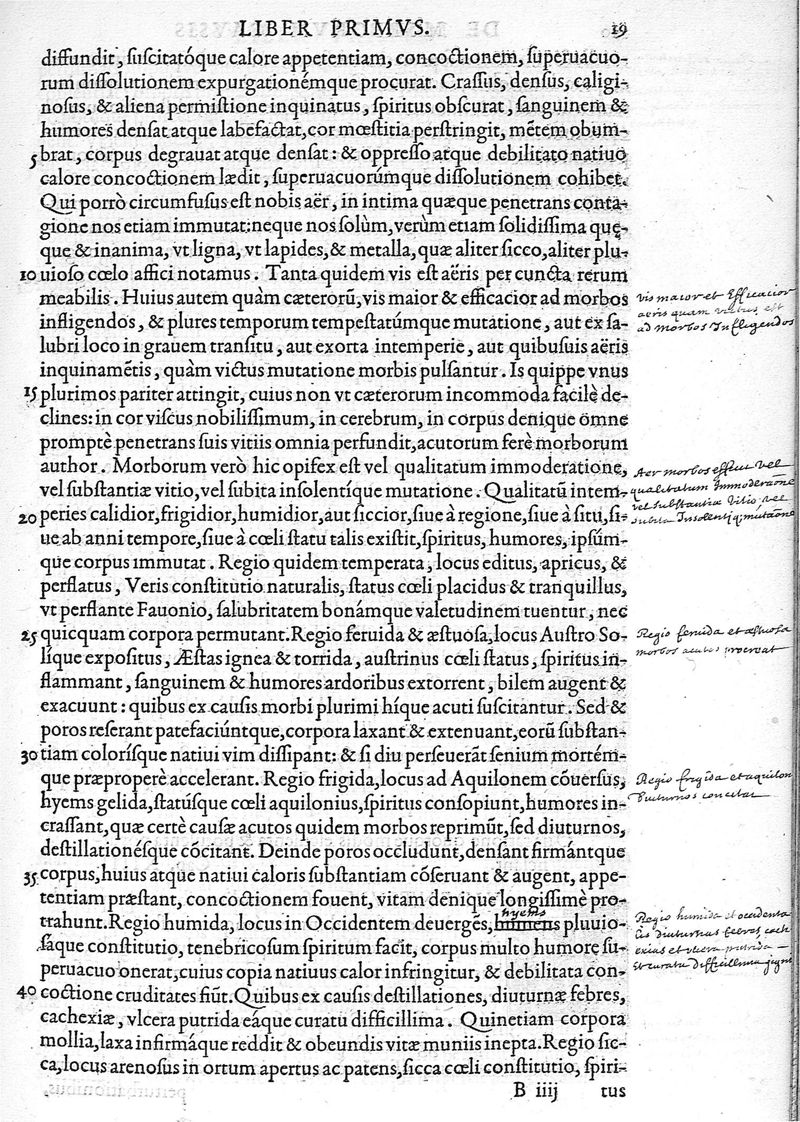 LIBER PRIMVS. 19
diffundit, suscitatóque calore appetentiam, concoctionem, superuacuo-
rum dissolutionem expurgationémque procurat. Crassus, densus, caligi-
nosus, & aliena permistione inquinatus, spiritus obscurat, sanguinem &
humores densat atque labefactat, cor mœstitia perstringit, mẽtem obum-
5 brat, corpus degrauat atque densat: & oppresso atque debilitato natiuo
calore concoctionem lædit, superuacuorúmque dissolutionem cohibet.
Qui porrò circumfusus est nobis aër, in intima quæque penetrans conta-
gione nos etiam immutat: neque nos solùm, verùm etiam solidissima quę-
que & inanima, vt ligna, vt lapides, & metalla, quæ aliter sicco, aliter plu-
10 uioso cœlo affici notamus. Tanta quidem vis est aëris per cuncta rerum
meabilis. Huius autem quàm cæterorũ, vis maior & efficacior ad morbos
infligendos, & plures temporum tempestatúmque mutatione, aut ex sa-
lubri loco in grauem transitu, aut exorta intemperie, aut quibusuis aëris
inquinamẽtis, quàm victus mutatione morbis pulsantur. Is quippe vnus
15 plurimos pariter attingit, cuius non vt cæterorum incommoda facilè de-
clines: in cor viscus nobilissimum, in cerebrum, in corpus denique omne
promptè penetrans suis vitiis omnia perfundit, acutorum ferè morborum
author. Morborum verò hic opifex est vel qualitatum immoderatione,
vel substantiæ vitio, vel subita insolentíque mutatione. Qualitatũ intem-
20 peries calidior, frigidior, humidior, aut siccior, siue à regione, siue à situ, si-
ue ab anni tempore, siue à cœli statu talis existit, spiritus, humores, ipsúm-
que corpus immutat. Regio quidem temperata, locus editus, apricus, &
perflatus, Veris constitutio naturalis, status cœli placidus & tranquillus,
vt perflante Fauonio, salubritatem bonámque valetudinem tuentur, nec
25 quicquam corpora permutant. Regio feruida & æstuosa, locus Austro So-
líque expositus, Æstas ignea & torrida, austrinus cœli status, spiritus in-
flammant, sanguinem & humores ardoribus extorrent, bilem augent &
exacuunt: quibus ex causis morbi plurimi híque acuti suscitantur. Sed &
poros reserant patefaciúntque, corpora laxant & extenuant, eorũ substan-
30 tiam colorísque natiui vim dissipant: & si diu perseuerãt senium mortém-
que præproperè accelerant. Regio frigida, locus ad Aquilonem cõuersus,
hyems gelida, statúsque cœli aquilonius, spiritus consopiunt, humores in-
crassant, quæ certè causæ acutos quidem morbos reprimũt, sed diuturnos,
destillationésque cõcitant. Deinde poros occludunt, densant firmántque
35 corpus, huius atque natiui caloris substantiam cõseruant & augent, appe-
tentiam præstant, concoctionem fouent, vitam denique longissimè pro-
hyems
trahunt. Regio humida, locus in Occidentem deuergẽs, humens pluuio-
sáque constitutio, tenebricosum spiritum facit, corpus multo humore su-
peruacuo onerat, cuius copia natiuus calor infringitur, & debilitata con-
40 coctione cruditates fiũt. Quibus ex causis destillationes, diuturnæ febres,
cachexiæ, vlcera putrida eáque curatu difficillima. Quinetiam corpora
mollia, laxa infirmáque reddit & obeundis vitæ muniis inepta. Regio sic-
ca, locus arenosus in ortum apertus ac patens, sicca cœli constitutio, spiri-
B iiij tus
vis maior et Efficacior
aeris quam victus est
ad morbos Infligendos
Aer morbos efficit vel
qualitatum Immoderatione
vel substantiæ Vitio, vel
subita Insolentiq; mutatione
Regio feruida et æstuosa
morbos acutos procreat
Regio frigida et aquilon
Diuturnos concitat
Regio humida et occidenta
lis diuturnas febres cach
exias et vlcera putrida
et curatu difficillima gignit